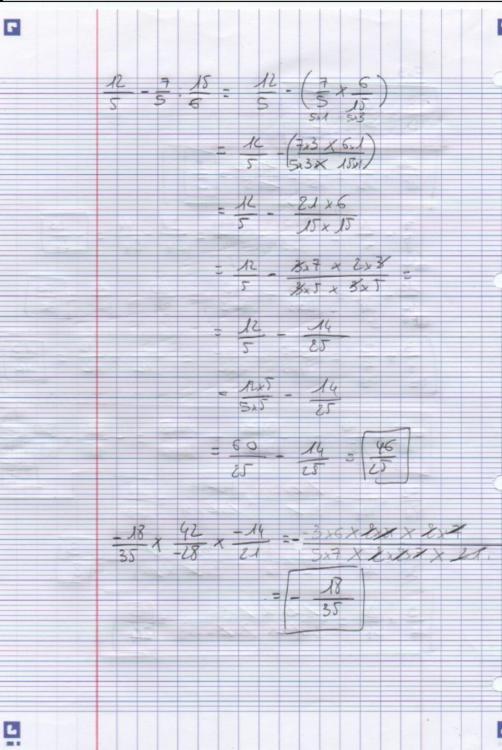 12/5 - 7/5 . 15/6 = 12/5 - (7/5 × 6/15)
5×1 5×3
= 12/5 - (7×3 × 6×1 / 5×3 × 15×1)
= 12/5 - 21×6 / 15×15
= 12/5 - 3×7 × 2×3 / 3×5 × 3×5 =
= 12/5 - 14/25
= 12×5 / 5×5 - 14/25
= 60/25 - 14/25 = 46/25
-18/35 × 42/-28 × -14/21 = - 3×6 ×
5×7 ×
= - 18/35